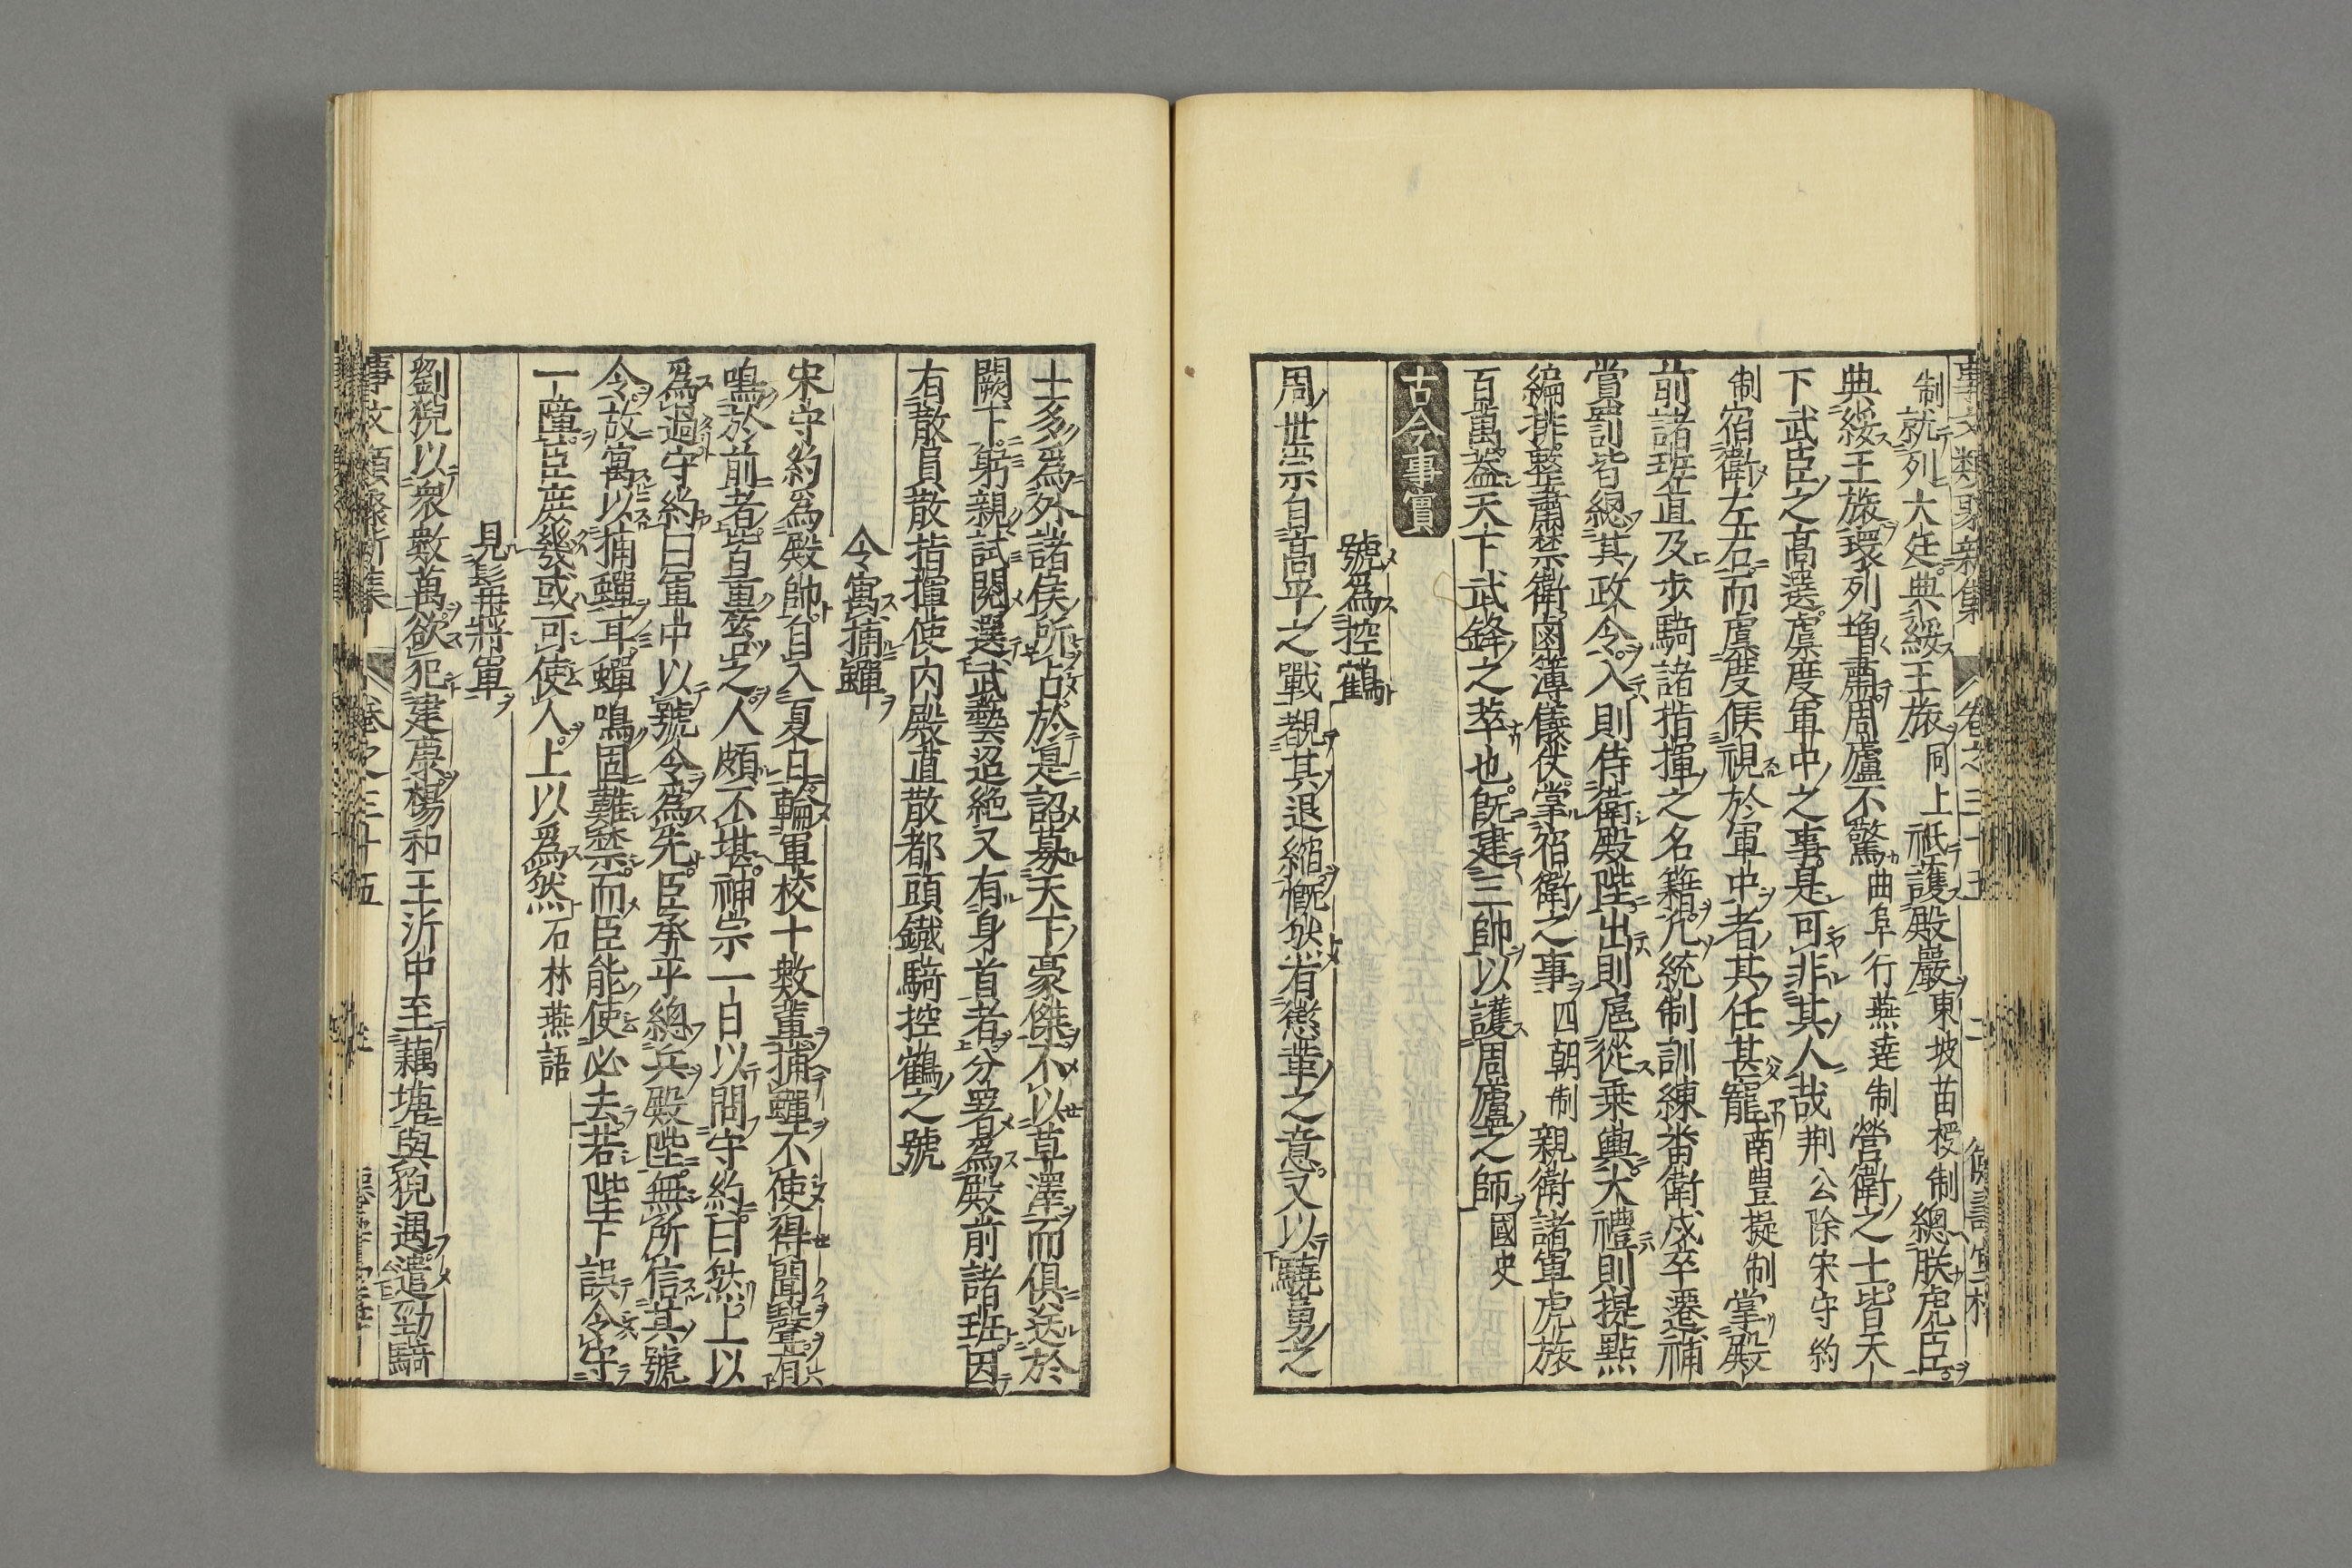 制就列大廷典綏王旅同上祇護殿嚴東坡苗授制總朕虎臣
典綏王旅環列增肅周廬不驚曲阜行燕達制營衛之士皆天
下武臣之高選虞度軍中之事是可非其人哉荆公除宋守約
制宿衛左右而虞度候視於軍中者其任甚寵南豊擬制掌殿
前諸班直及步騎諸指揮之名籍凡統制訓練畨衛戍卒遷補
賞罰皆總其政令入則侍衛殿陛出則扈從乗輿大禮則提點
編排整肅禁衛鹵簿儀仗掌宿衛之事四朝制親衛諸軍虎旅
百萬葢天下武鋒之萃也既建三帥以護周廬之師國史
古今事實
號爲控鶴
周世宗自高平之戰觀其退縮慨然有懲革之意又以驍勇之
士多爲外諸侯所占於是詔募天下豪傑不以草澤而俱送於
闕下躬親試閱選武藝迢絶又有身首者分署爲殿前諸班因
有散員散指揮使内殿直散都頭鐵騎控鶴之號
令寓捕蟬
宋守約爲殿帥自入夏日輪軍校十數輩捕蟬不使得聞聲有
鳴於前者皆重笞之人頗不堪神宗一日以問守約曰然上以
爲過守約曰軍中以號令爲先臣承平總兵殿陛無所信其號
令故寓以捕蟬耳蟬鳴固難禁而臣能使必去若陛下誤令守
一障臣庶幾或可使人上以爲然石林燕語
見髯將軍
劉猊以衆數萬欲犯建康楊和王沂中至藕塘與猊遇遣勁騎